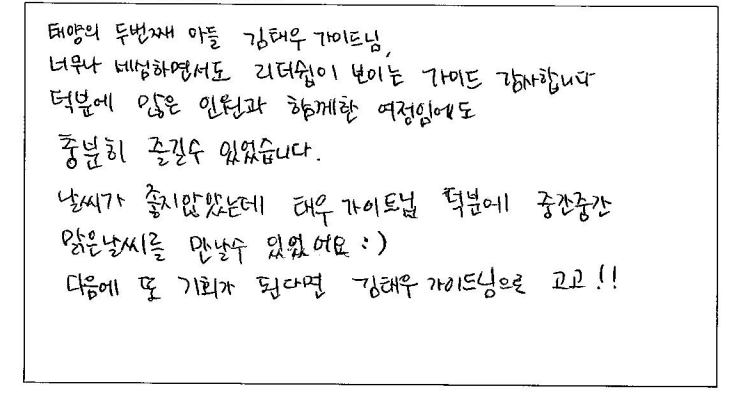 태양의 두번째 아들 김태우 가이드님,
너무나 세심하면서도 리더쉽이 보이는 가이드 감사합니다
덕분에 많은 인원과 함께한 여정임에도
충분히 즐길수 있었습니다.
날씨가 좋지않았는데 태우 가이드님 덕분에 중간중간
맑은날씨를 만날수 있었어요 :)
다음에 또 기회가 된다면 김태우 가이드님으로 고고!!